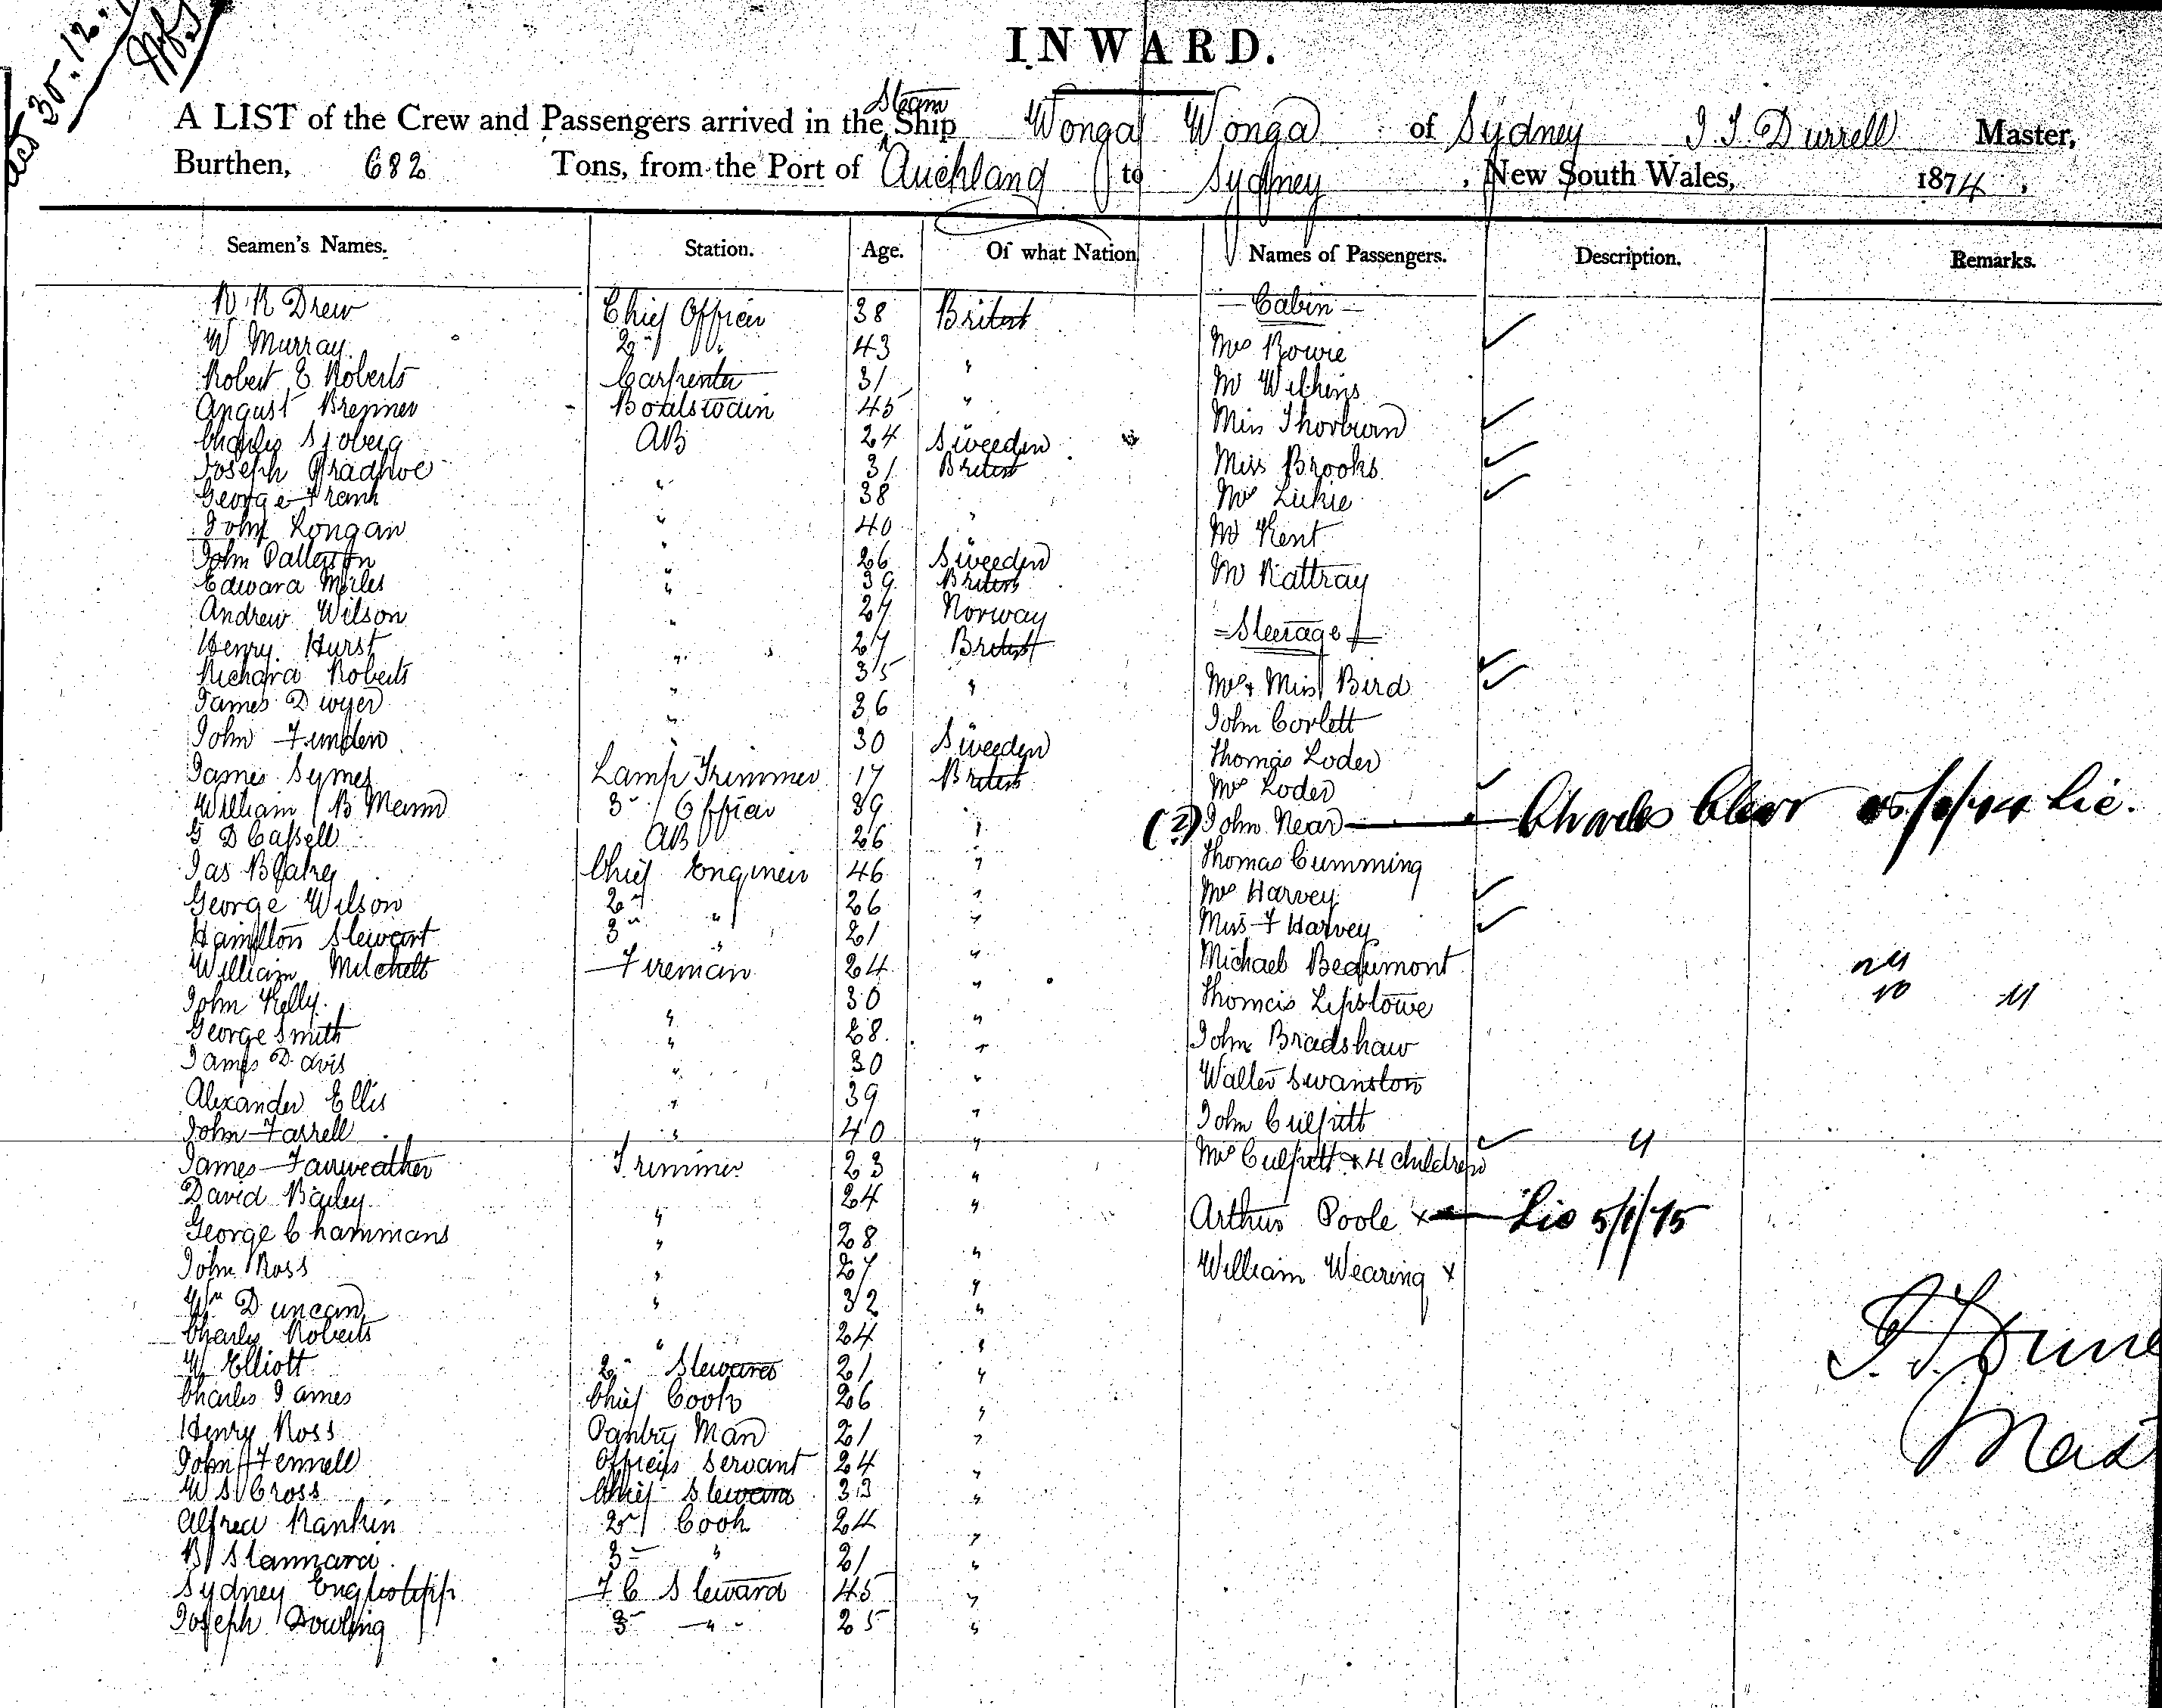 30.12.
INWARD.
A LIST of the Crew and Passengers arrived in the Steam Ship Wonga Wonga of Sydney J. S. Durrell Master,
Burthen, 682 Tons, from the Port of Auckland to Sydney, New South Wales, 1874,
Seamen's Names. Station. Age. Of what Nation Names of Passengers. Description. Remarks.
R R Drew Chief Officer 38 British — Cabin —
W Murray 2nd Do. 43 Mrs Bowie
Robert E Roberts Carpenter 31 " Mr Wilkins
August Brenner Boatswain 45 " Miss Thorburn
Charles Sjoberg AB 24 Sweeden Miss Brooks
Joseph 31 British
George Frank " 38 Mrs Lickie
John Longan " 40 " Mr Kent
John Patterson " 26 Sweeden
Edward Miles " 39 British Mr Rattray
Andrew Wilson " 27 Norway = Steerage
Henry Hurst " 27 British
Richard Roberts " 35 " Mrs & Miss Bird
James Dwyer " 36 John Corlett
John Funden " 30 Sweeden Thomas Loder
James Symes Lamp Trimmer 17 British Mrs Loder
William B Mann 3rd Officer 39 " (2) John Near — Charles Lic.
G D Cassell AB 26 " Thomas Cumming
Jas Chief Engineer 46 " Mrs Harvey
George Wilson 2nd " 26 " Miss F Harvey
Hamilton Stewart 3rd " 21 "
William Mitchell Fireman 24 " Michael Beaumont
John Kelly 30 " Thomas Lipstowe
George Smith " 28 " John Bradshaw
James Davis " 30 " Walter Swanston
Alexander Ellis " 39 " John Culpitt
John Farrell " 40 " Mrs Culpitt & 4 children
James Fairweather Trimmer 23 "
David Bailey 24 " Arthur Poole x — Lic 5/1/75
George Chammans " 28 "
John Ross " 27 " William Wearing x
Wm Duncan " 32 "
Charles Roberts " 24 "
W Elliott 2nd Steward 21 "
Charles James Chief Cook 26 "
Henry Ross Pantry Man 21 "
John Fennell Officers Servant 24 "
W S Cross Chief Steward 33 "
Alfred Rankin 2nd Cook 24 "
B Stannard 3rd " 21 "
Sydney F C Steward 45 "
Joseph Dowling 3rd " 25 "